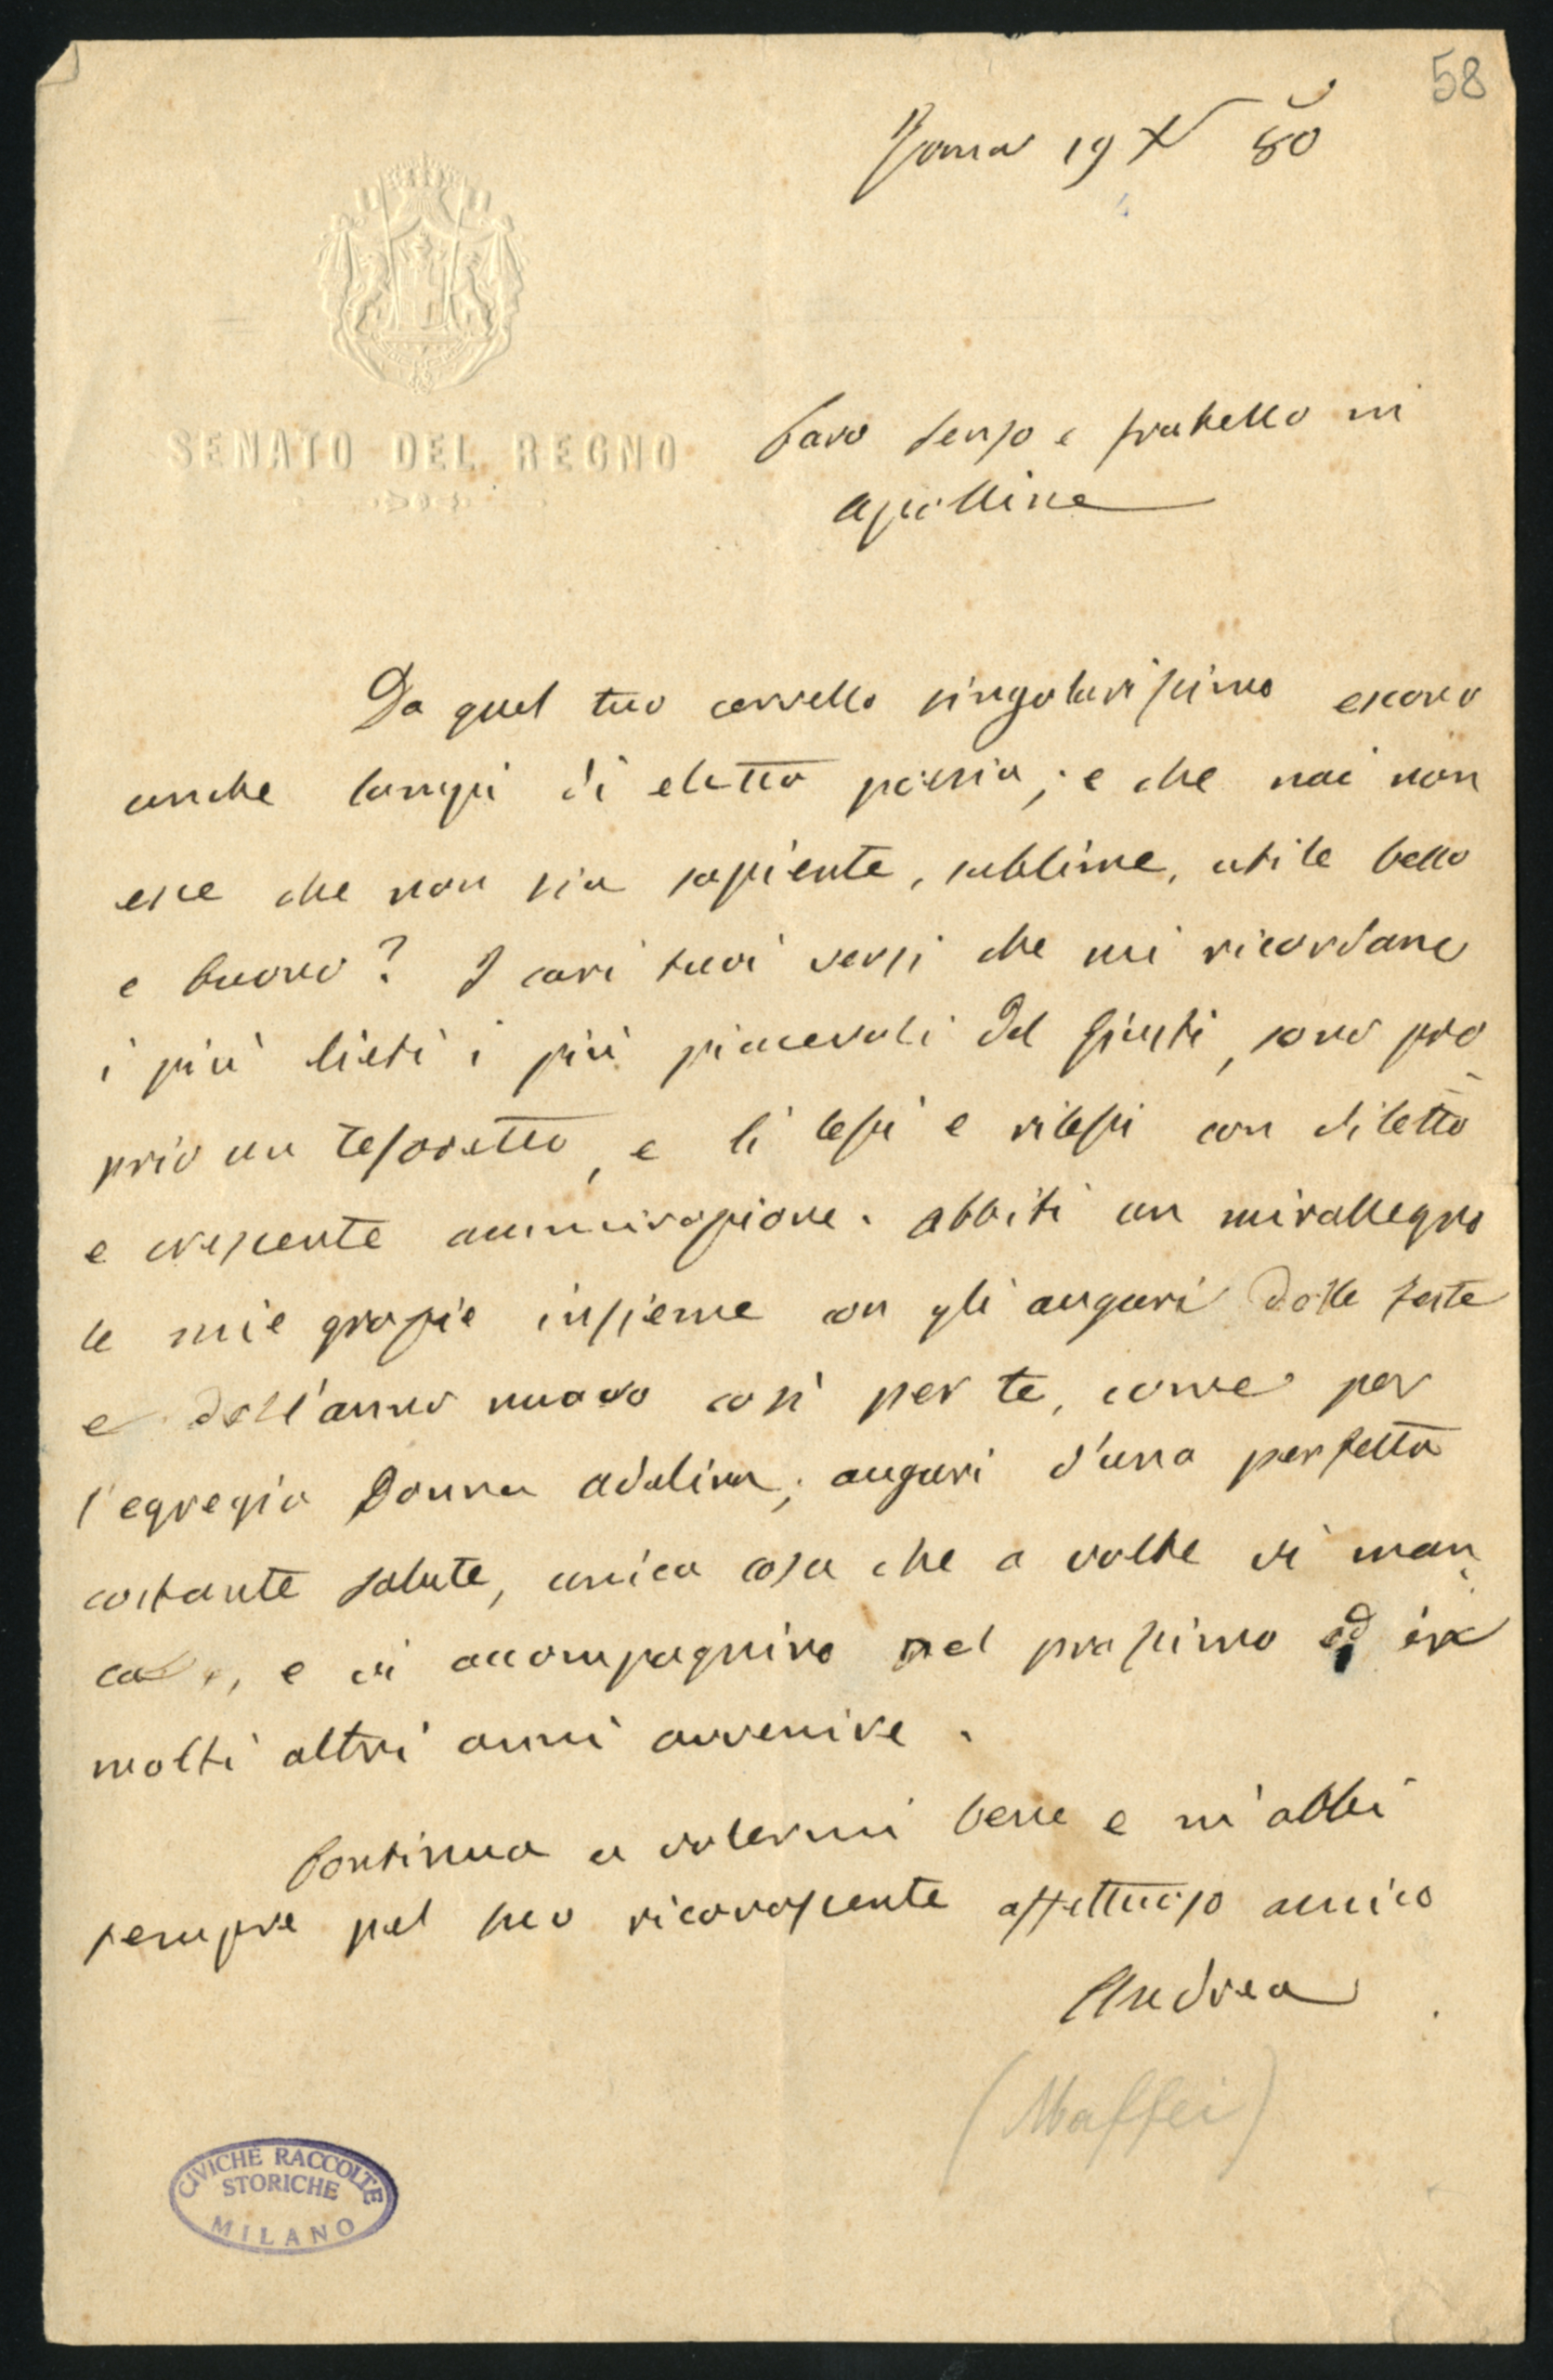 58
Roma 19 X 80
SENATO DEL REGNO
Caro Renzo e fratello in
Apolline
Da quel tuo cervello singolarissimo escono
anche lampi di eletta poesia; e che mai non
esce che non sia sapiente, sublime, utile bello
e buono? I cari tuoi versi che mi ricordano
i più lieti i più piacevoli del Giusti, sono pro
prio un tesoretto, e li lessi e rilessi con diletto
e crescente ammirazione. Abbiti un mirallegro
le mie grazie insieme con gli auguri delle feste
e dell'anno nuovo così per te, come per
l'egregia Donna Adelina; auguri d'una perfetta
costante salute, unica cosa che a volte vi man
ca, e vi accompagnino nel prossimo ed in
molti altri anni avvenire.
Continua a volermi bene e m'abbi
sempre pel tuo riconoscente affettuoso amico
Andrea
(Maffei)
CIVICHE RACCOLTE
STORICHE
MILANO